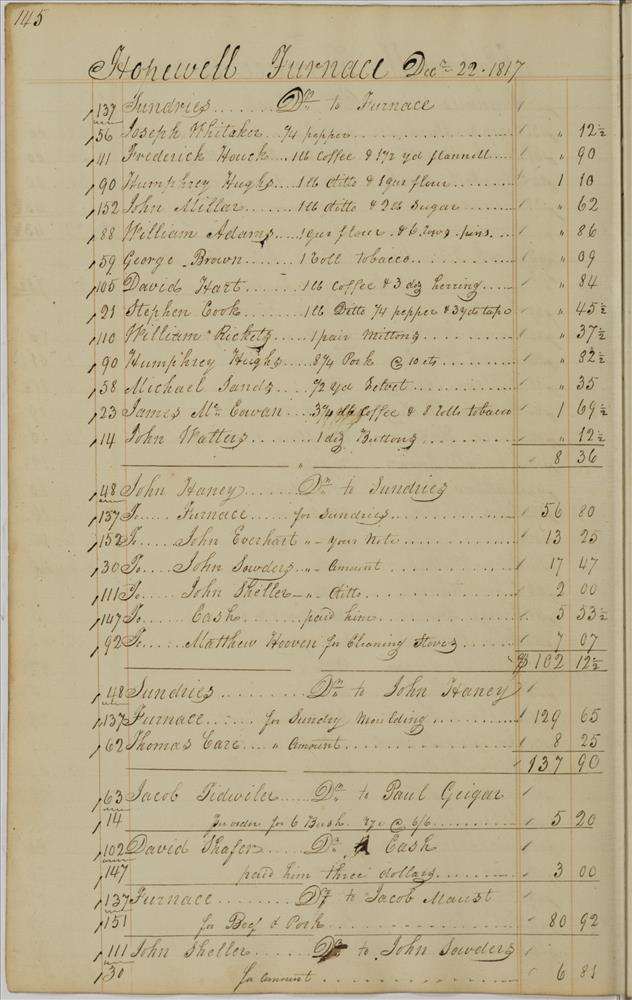 145
Hopewell Furnace Decr 22. 1817
137 Sundries ....... Dr to Furnace
56 Joseph Whitaker ... /4 pepper ........ " 12½
41 Frederick Houck .... 1 lb Coffee & 1½ yd flannell .... " 90
90 Humphrey Hughs .... 1 lb ditto & 1 qur flour ........ 1 10
152 John Millar ....... 1 lb ditto & 2 lb Sugar ........ " 62
88 William Adams .... 1 qur flour & 6 rows pins ... " 86
59 George Brown ...... 1 roll tobacco ........ " 09
105 David Hart ...... 1 lb Coffee & 3 doz herring ..... " 84
21 Stephen Cook ...... 1 lb Ditto /4 pepper & 3 yds tape " 45½
110 William Rickets .... 1 pair Mittons ........ " 37½
90 Humphrey Hughs .... 8¼ Pork @ 10 cts ........ " 82½
58 Michael Sands .... ½ yd Velvet ........ " 35
23 James Mc Cowan .... 3¼ lb Coffee & 8 rolls tobacco 1 69½
14 John Watters ....... 1 doz Buttons ........ " 12½
8 36
48 John Haney ...... Dr to Sundries
137 To .... Furnace .... for Sundries ........ 56 80
152 To .... John Everhart " – your Note ........ 13 25
30 To .... John Sowders " – Amount ........ 17 47
111 To .... John Sheller – " – ditto ........ 2 00
147 To ..... Cash ....... paid him ........ 5 53½
92 To ..... Matthew Hooven for Cleaning Stoves ...... 7 07
$ 102 12½
48 Sundries ......... Dr to John Haney
137 Furnace ...... for Sundry Moulding ........ 129 65
62 Thomas Care .... " Amount ........ 8 25
137 90
63 Jacob Tidwiler ..... Dr to Paul Geigar
14 Pr order for 6 Bush rye @ 6/6 ...... 5 20
102 David Shafer ...... Dr Cash
147 paid him three dollars ........ 3 00
137 Furnace ......... Dr to Jacob Maust
151 for Beef & Pork ........ 80 92
111 John Sheller ...... Dr to John Sowders
30 for amount ........ 6 81